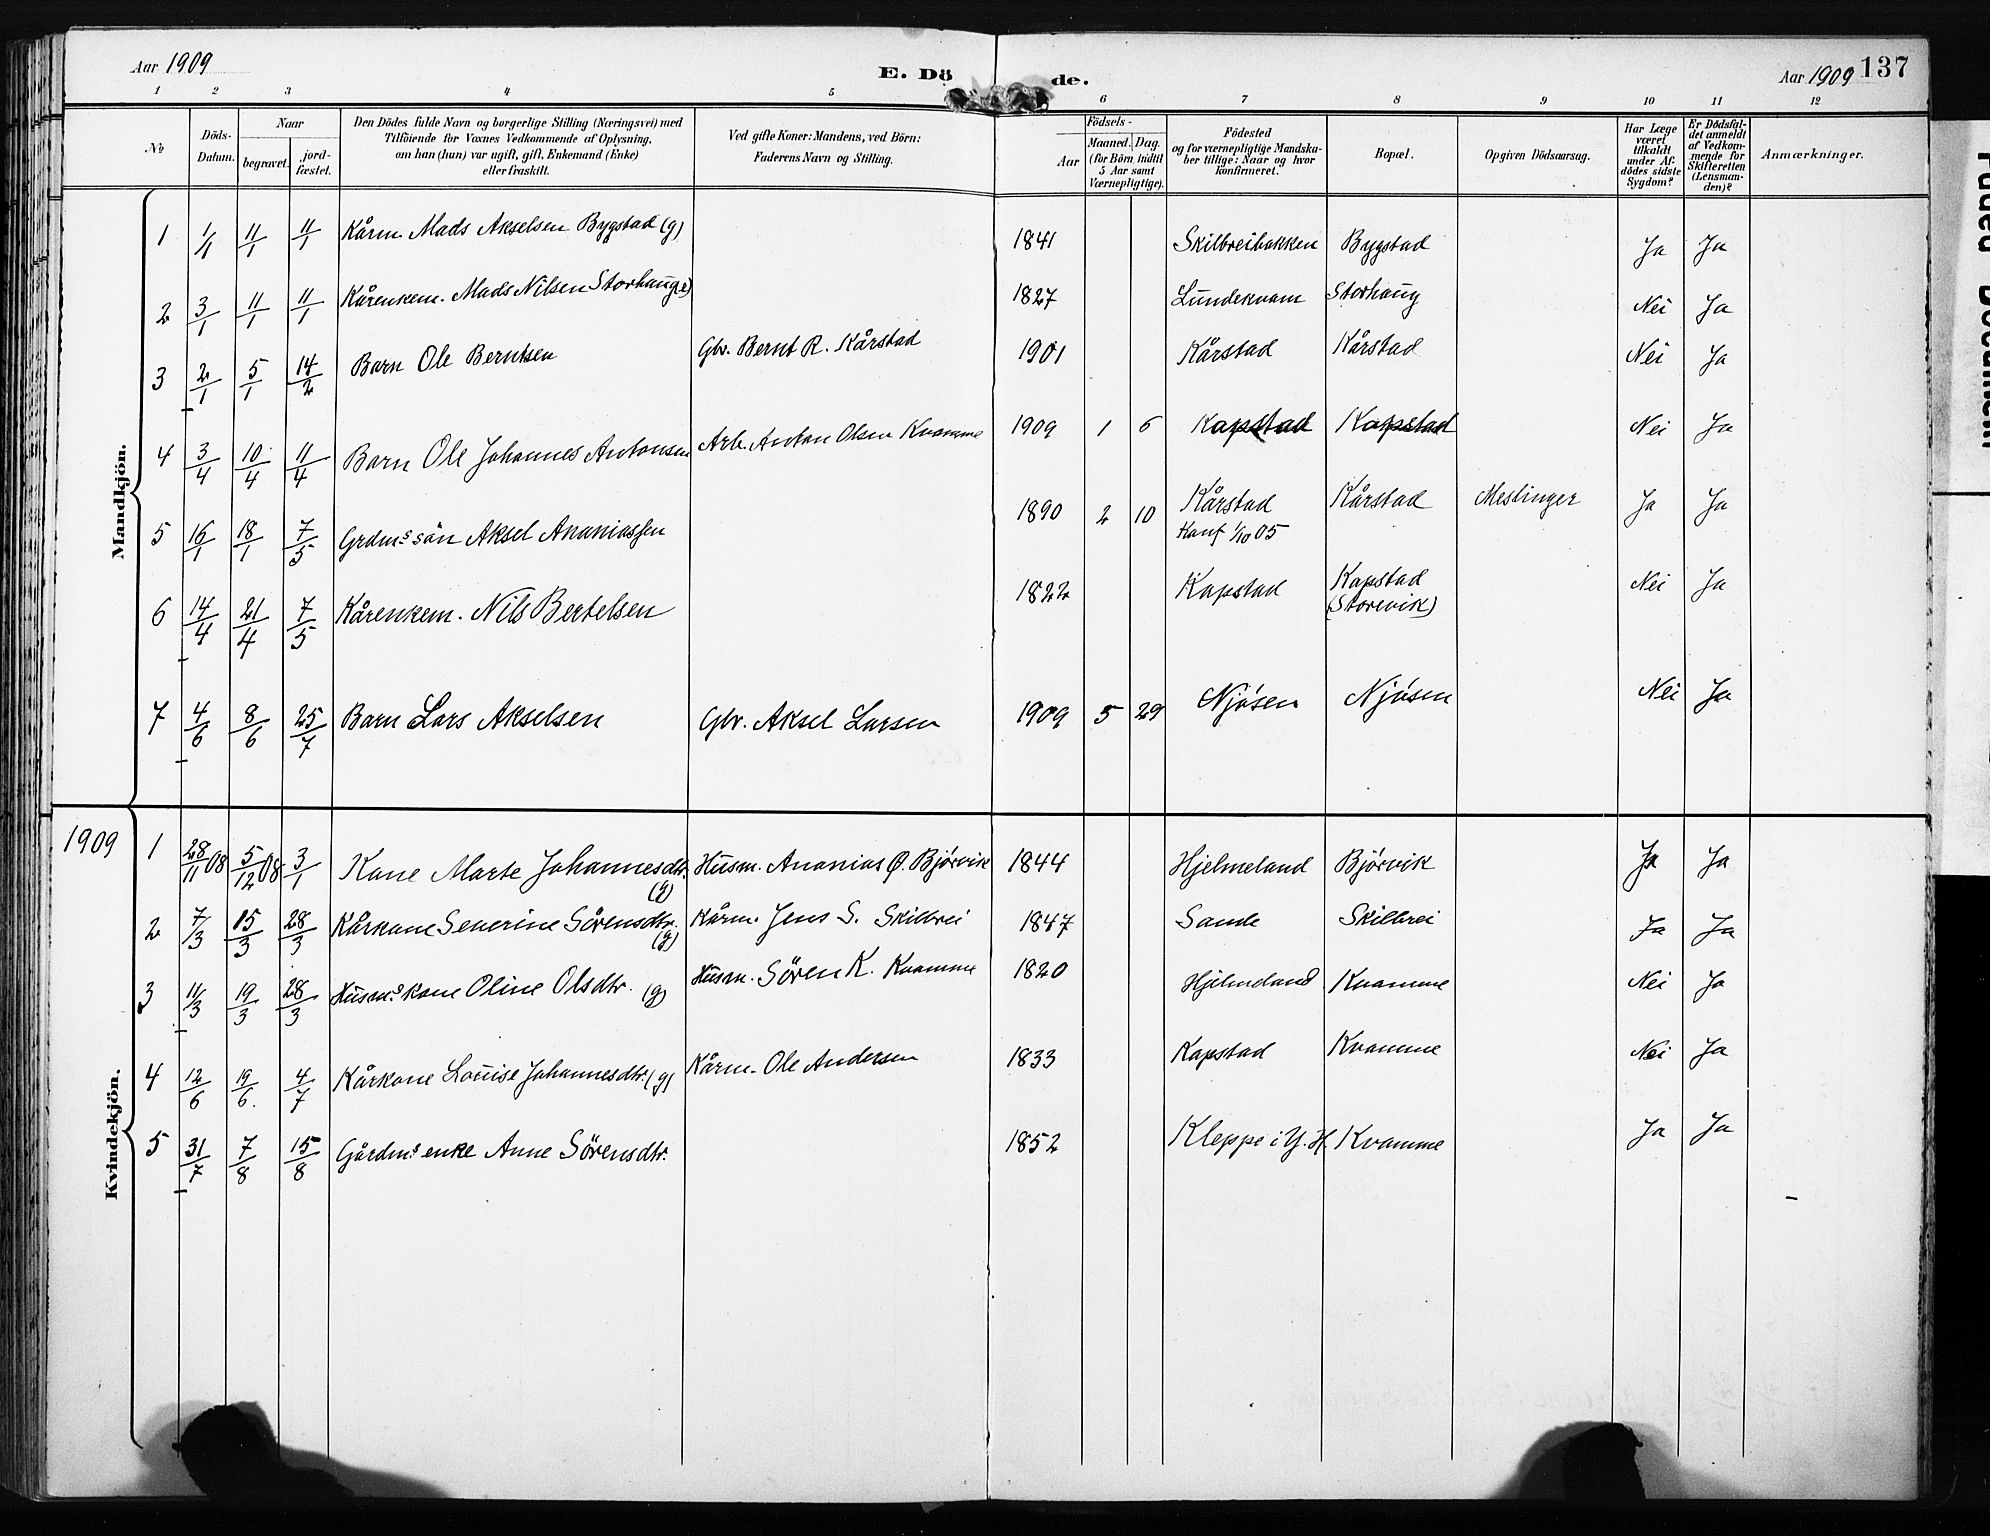 Aar 1909
E. Dö
de.
Aar 1909 137
1 2 3 4 5 6 7 8 9 10 11 12
№
Döds-Datum.
Naar
begravet.
jord-fæstet.
Den Dödes fulde Navn og borgerlige Stilling (Næringsvei) med
Tilföiende for Voxnes Vedkommende af Oplysning,
om han (hun) var ugift, gift, Enkemand (Enke)
eller fraskilt.
Ved gifte Koner: Mandens, ved Börn:
Faderens Navn og Stilling.
Födsels-
Aar
Maaned. Dag.
(for Börn indtil
5 Aar samt
Værnepligtige).
Födested
og for værnepligtige Mandska-
ber tillige: Naar og hvor
konfirmeret.
Bopæl.
Opgiven Dödsaarsag.
Har Læge
været
tilkaldt
under Af-
dödes sidste
Sygdom?
Er Dödsfal-
det anmeldt
af Vedkom-
mende for
Skifteretten
(Lensman-
den)?
Anmærkninger.
Mandkjön.
1 1/1 11/1 11/1 Kårm. Mads Akselsen Bygstad (g) 1841 Skilbreibakken Bygstad Ja Ja
2 3/1 11/1 11/1 Kårenkem. Mads Nilsen Storhaug(e) 1827 Lundekvam Storhaug Nei Ja
3 2/1 5/1 14/2 Barn Ole Berntsen Gbr. Bernt R. Kårstad 1901 Kårstad Kårstad Nei Ja
4 3/4 10/4 11/4 Barn Ole Johannes Antonsen Arb. Anton Olsen Kvamme 1909 1 6 Kapstad Kapstad Nei Ja
5 16/1 18/1 7/5 Grdms sön Aksel Ananiassen 1890 2 10 Kårstad Kårstad Meslinger Ja Ja
Konf 1/10 05
6 14/4 21/4 7/5 Kårenkem. Nils Bertelsen 1822 Kapstad Kapstad Nei Ja
(Storevik)
7 4/6 8/6 25/7 Barn Lars Akselsen Gbr. Aksel Larsen 1909 5 29 Njøsen Njøsen Nei Ja
Kvindekjön.
1909 1 28/11 08 5/12 08 3/1 Kone Marte Johannesdtr. (g) Husm. Ananias Ø. Bjørvik 1844 Hjelmeland Bjørvik Ja Ja
2 7/3 15/3 28/3 Kårkone Severine Sörensdtr. (g) Kårm. Jens S. Skilbrei 1847 Sande Skilbrei Ja Ja
3 11/3 19/3 28/3 Husms kone Oline Olsdtr. (g) Husm. Sören K. Kvamme 1820 Hjelmeland Kvamme Nei Ja
4 12/6 19/6. 4/7 Kårkone Louise Johannesdtr. (g) Kårm. Ole Andersen 1833 Kapstad Kvamme Nei Ja
5 31/7 7/8 15/8 Gårdms enke Anne Sörensdtr. 1852 Kleppe i Y. H. Kvamme Ja Ja